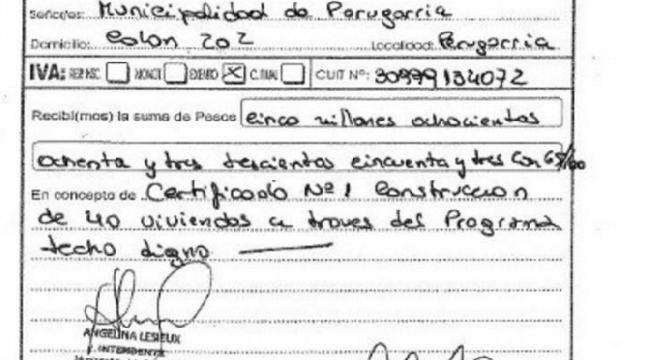 Señor/es: Municipalidad de Perugorria
Domicilio: Colon 202 Localidad: Perugorria
IVA: RESP. INSC. MONOT EXENTO X C. FINAL CUIT Nº: 30999134072
Recibí(mos) la suma de Pesos cinco millones ochocientos
ochenta y tres trescientos cincuenta y tres con 65/100
En concepto de Certificado Nº 1 Construccion
de 40 viviendas a traves del Programa
techo digno
ANGELINA LESIEUX
INTENDENTE